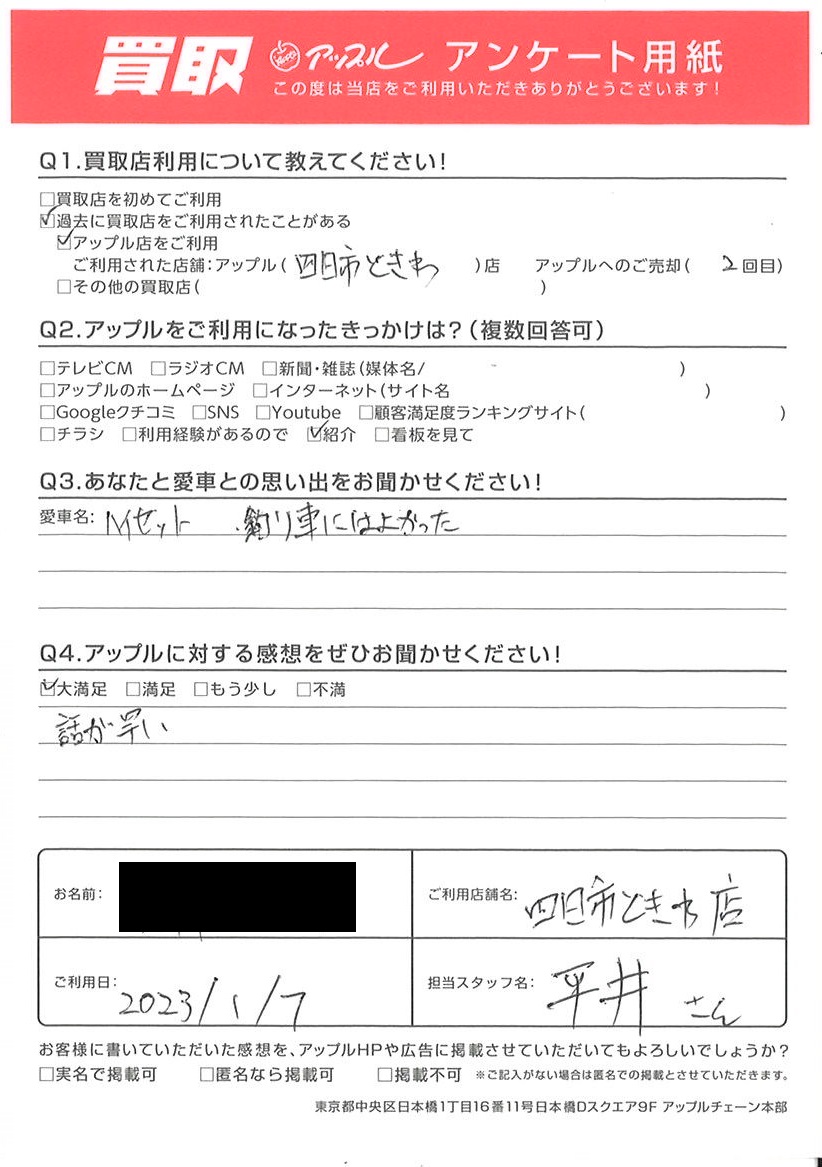 買取 アップル アンケート用紙
この度は当店をご利用いただきありがとうございます!
Q1.買取店利用について教えてください!
□買取店を初めてご利用
☑過去に買取店をご利用されたことがある
☑アップル店をご利用
ご利用された店舗:アップル( 四日市ときわ )店 アップルへのご売却( 2回目)
□その他の買取店( )
Q2.アップルをご利用になったきっかけは?(複数回答可)
□テレビCM □ラジオCM □新聞・雑誌(媒体名/ )
□アップルのホームページ □インターネット(サイト名 )
□Googleクチコミ □SNS □Youtube □顧客満足度ランキングサイト( )
□チラシ □利用経験があるので ☑紹介 □看板を見て
Q3.あなたと愛車との思い出をお聞かせください!
愛車名: ハイゼット 釣り車にはよかった
Q4.アップルに対する感想をぜひお聞かせください!
☑大満足 □満足 □もう少し □不満
話が早い
お名前:
ご利用店舗名: 四日市ときわ店
ご利用日: 2023/1/7
担当スタッフ名: 平井 さん
お客様に書いていただいた感想を、アップルHPや広告に掲載させていただいてもよろしいでしょうか?
□実名で掲載可 □匿名なら掲載可 □掲載不可 ※ご記入がない場合は匿名での掲載とさせていただきます。
東京都中央区日本橋1丁目16番11号日本橋Dスクエア9F アップルチェーン本部